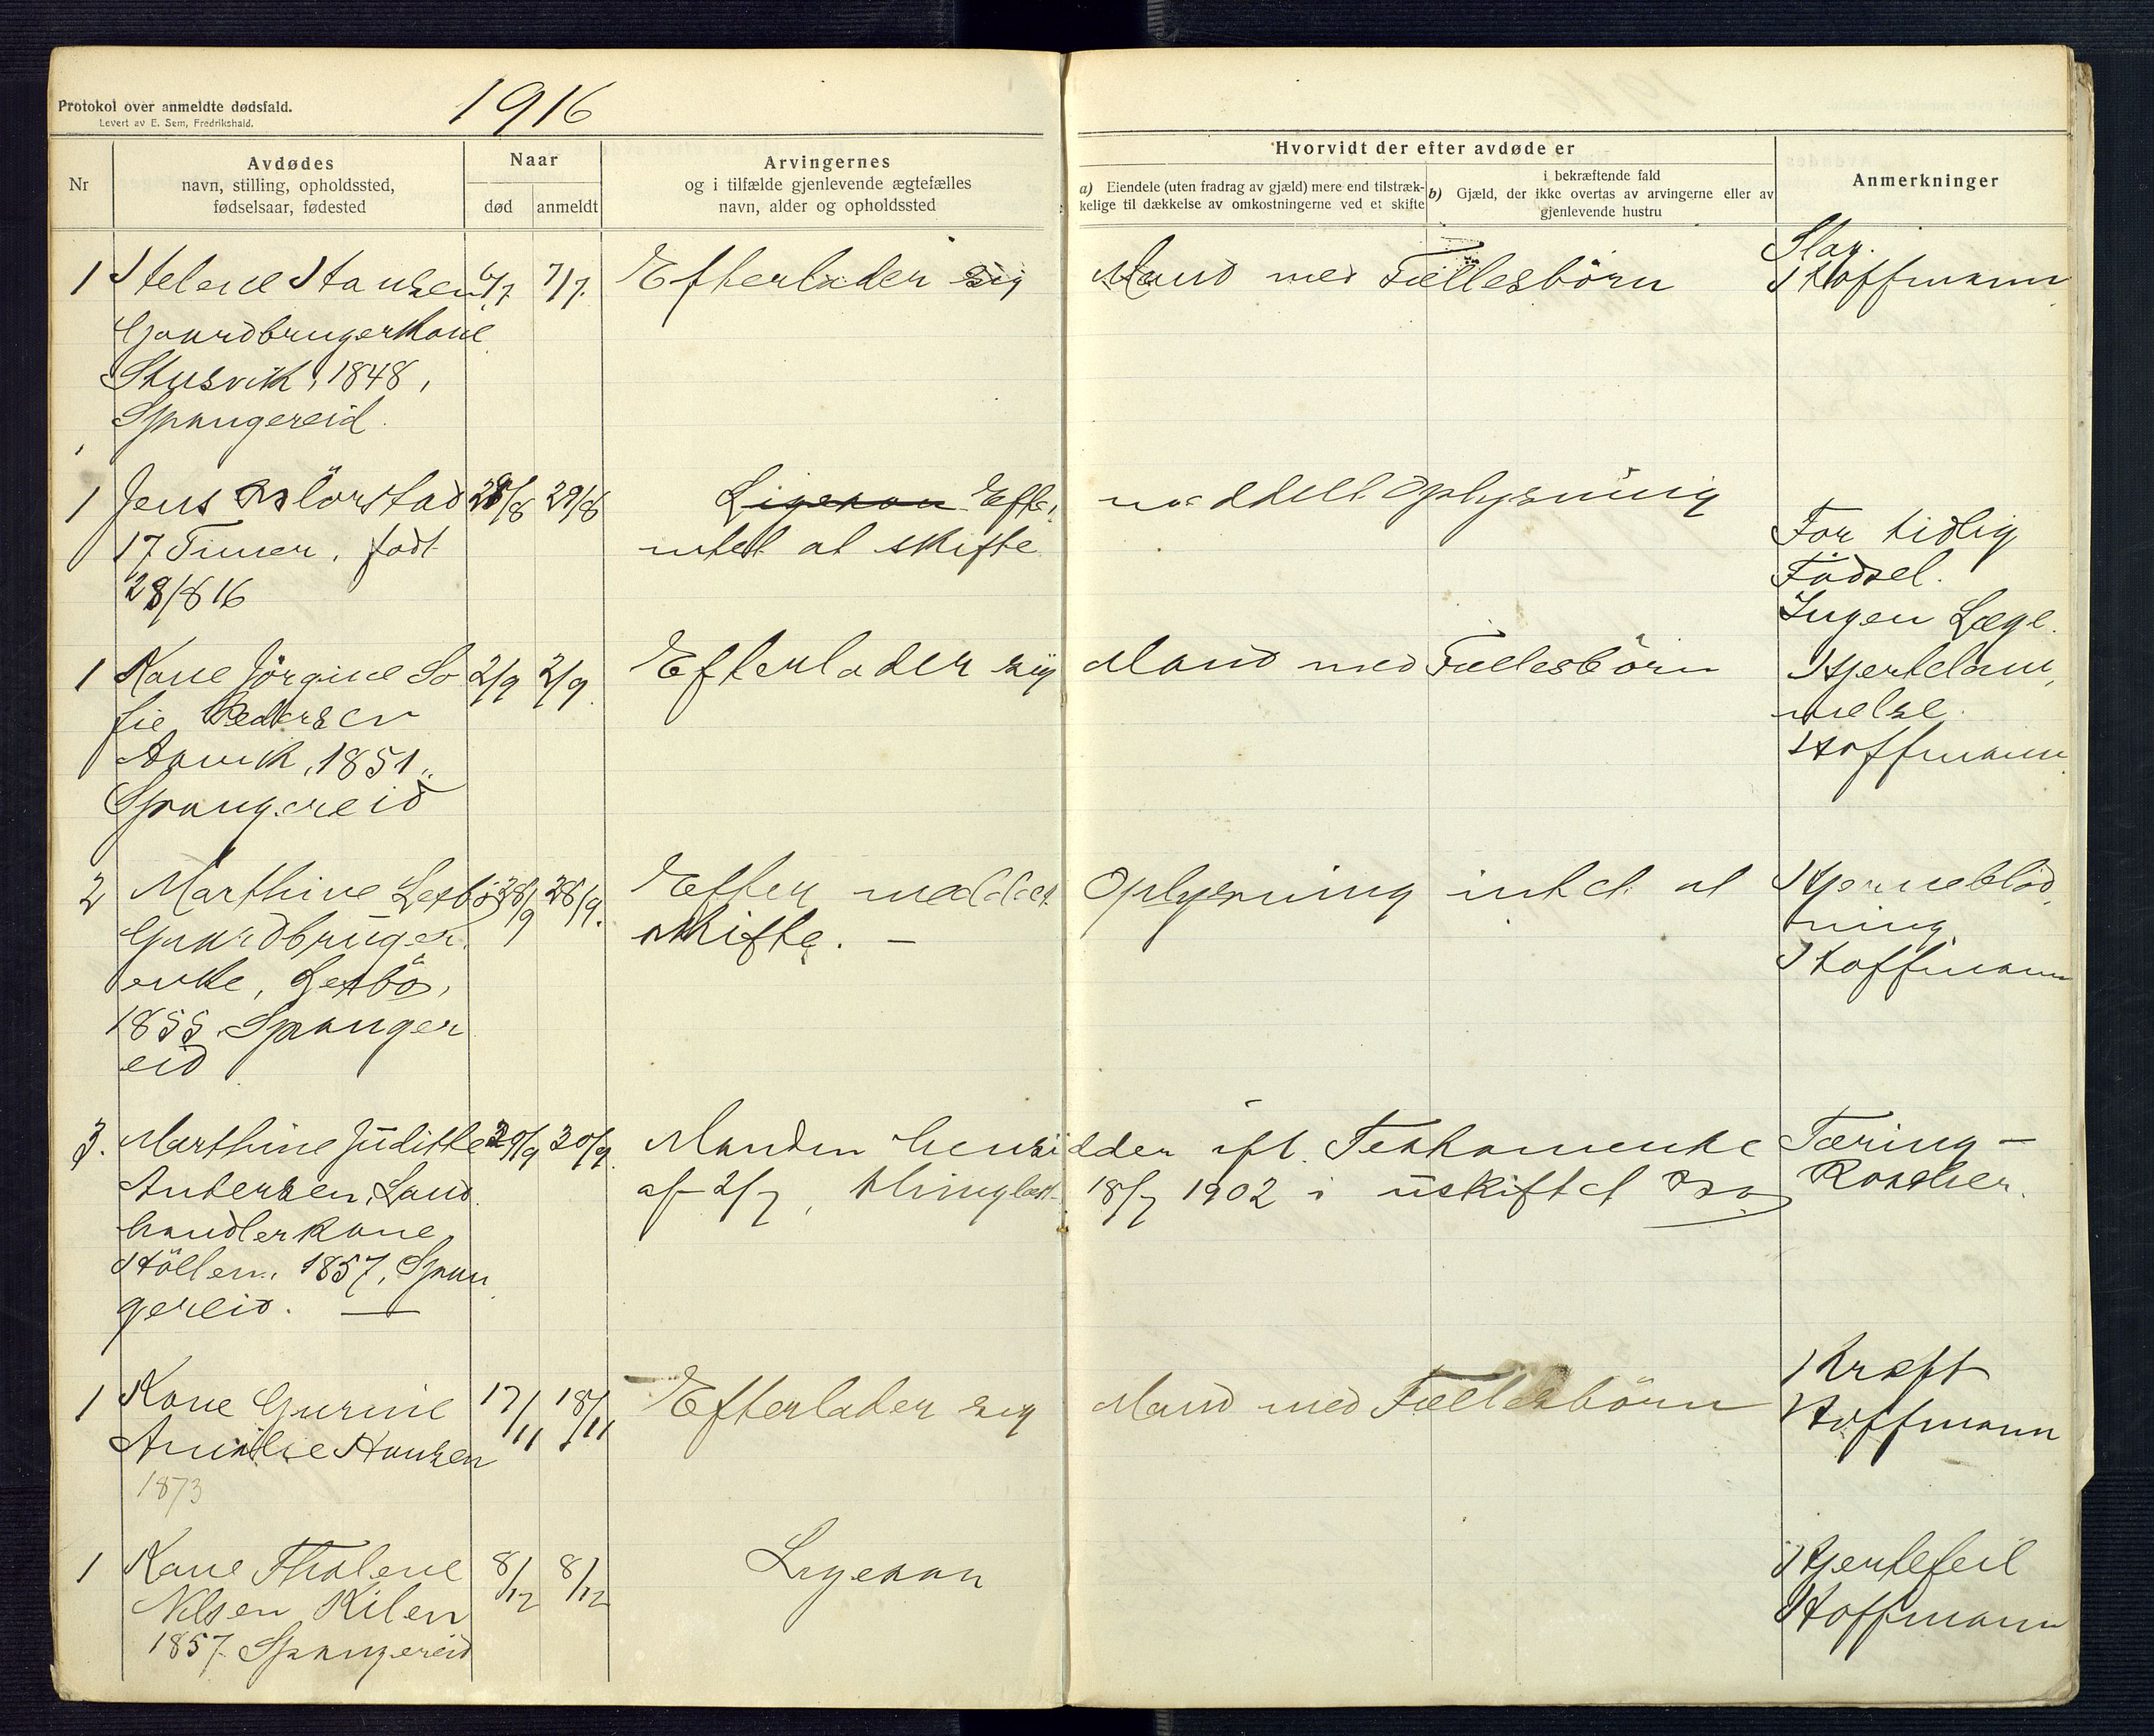 Protokol over anmeldte dødsfald.
Levert av E. Sem, Fredrikshald.
1916
Nr
Avdødes
navn, stilling, opholdssted,
fødselsaar, fødested
Naar
død
anmeldt
Arvingernes
og i tilfælde gjenlevende ægtefælles
navn, alder og opholdssted
Hvorvidt der efter avdøde er
a) Eiendele (uten fradrag av gjæld) mere end tilstræk-
kelige til dækkelse av omkostningerne ved et skifte
i bekræftende fald
b) Gjæld, der ikke overtas av arvingerne eller av
gjenlevende hustru
Anmerkninger
1 Helene Hansen 6/7 7/7. Efterlader sig Mand med Fællesbörn Slag.
Hoffmann
Gaardbrugerkone
Stusvik, 1848,
Spangereid.
1 Jens Mörstad 28/8 29/8 Ligesaa Efter meddelt Oplysning
17 Timer, født intet at skifte
28/8 16
For tidlig
Födsel.
Ingen Læge.
1 Kone Jörgine So 2/9 2/9. Efterlader sig Mand med Fællesbörn Hjertelam,
fie Pedersen melse.
Aavik, 1851., Hoffmann
Spangereid
2 Marthine Lesbö 28/9 28/9. Efter meddelt Oplysning intet at Hjerneblöd,
Gaardbruger skifte. — ning
enke, Lesbö, Hoffmann
1855 Spanger
eid
3. Marthine Judithe 29/9 30/9. Manden hensidder ifl. Testamente Tæring —
Andersen, Land af 2/7, thinglæst 18/7 1902 i uskiftet Bo Roscher.
handlerkone
Höllen, 1857, Span
gereid. —
1 Kone Gurine 17/11 18/11 Efterlader sig Mand med Fællesbörn Kræft
Amalie Hansen Hoffmann
1873
1 Kone Thalene 8/12 8/12 Ligesaa Hjertefeil
Nilsen Kilen Hoffmann
1857. Spangereid